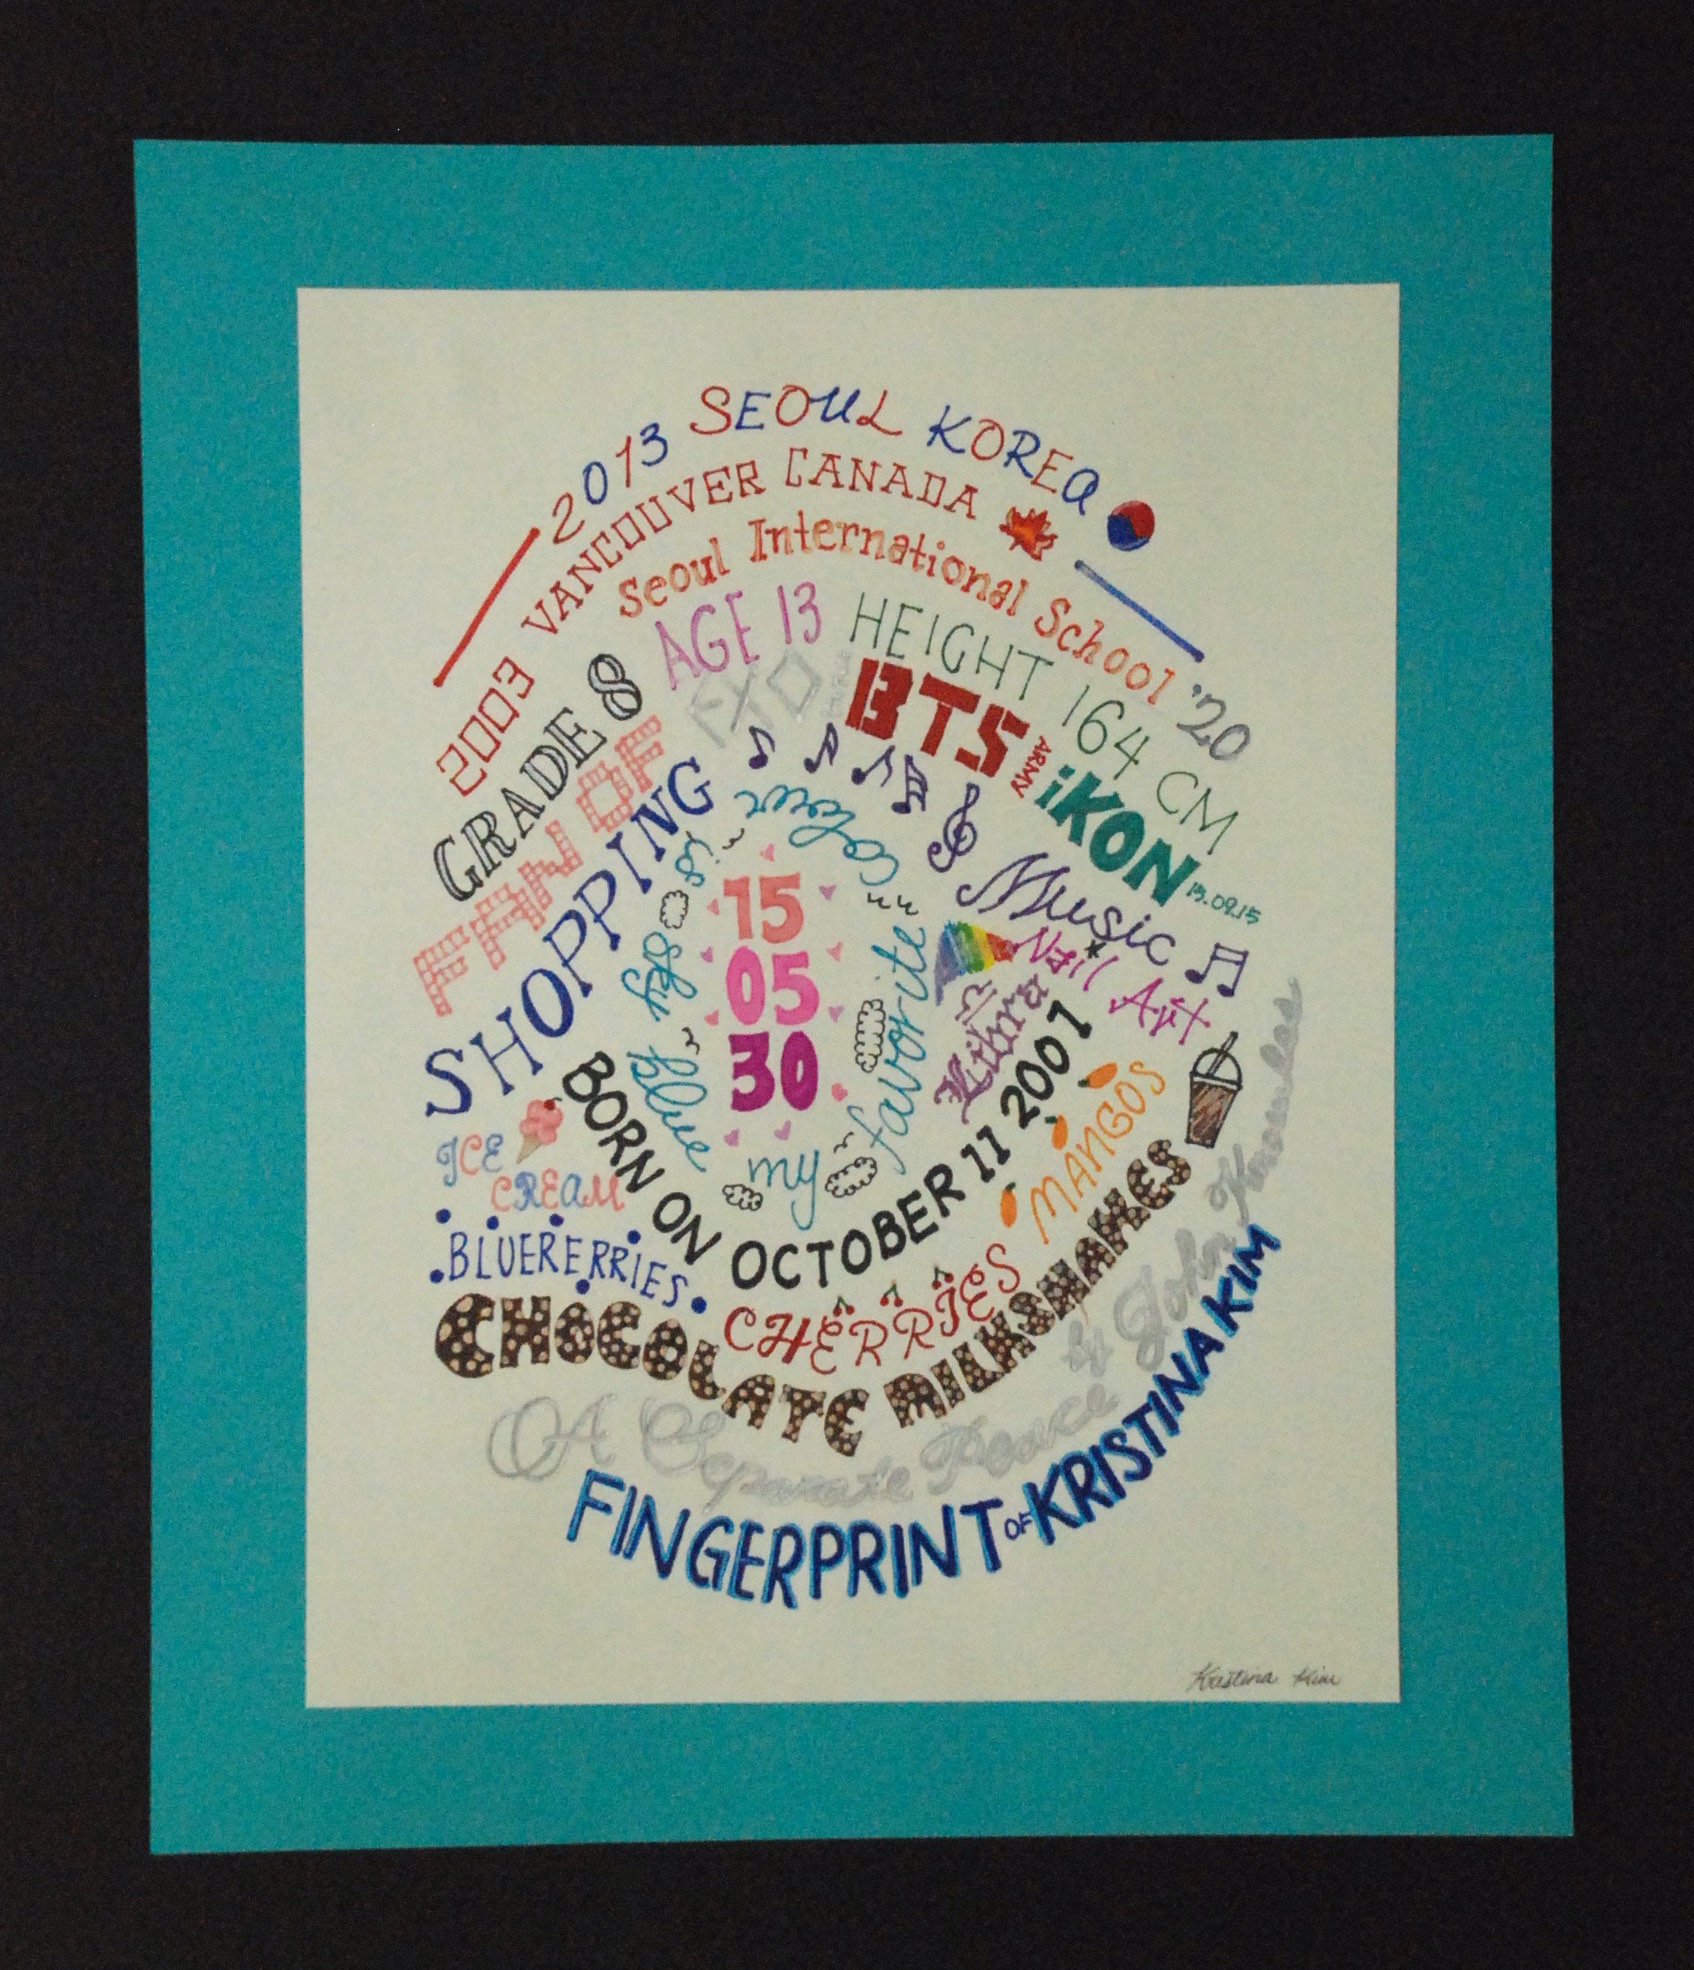 2013 SEOUL KOREA
2003 VANCOUVER CANADA
Seoul International School '20
GRADE 8
AGE 13
HEIGHT 164 CM
FAN OF
EXO
BTS
ARMY
iKON
15.09.15
SHOPPING
Music
Nail Art
Libra
my favorite colour is sky blue
15
05
30
BORN ON OCTOBER 11 2001
ICE CREAM
MANGOS
BLUERERRIES
CHERRIES
CHOCOLATE MILKSHAKES
A Separate Peace by John Knowles
FINGERPRINT OF KRISTINA KIM
Kristina Kim